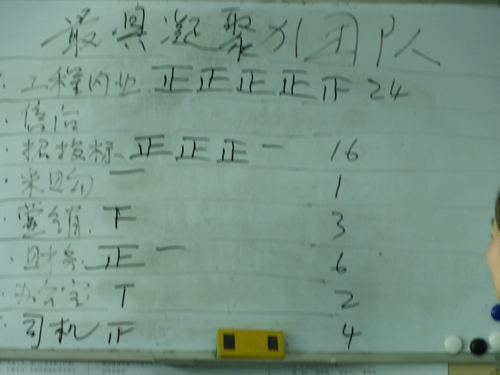 最具凝聚力团队
工程内业 正正正正正 24
信污
招投标 正正正一 16
采购 一 1
营销 下 3
财务 正一 6
办公室 T 2
司机 正 4